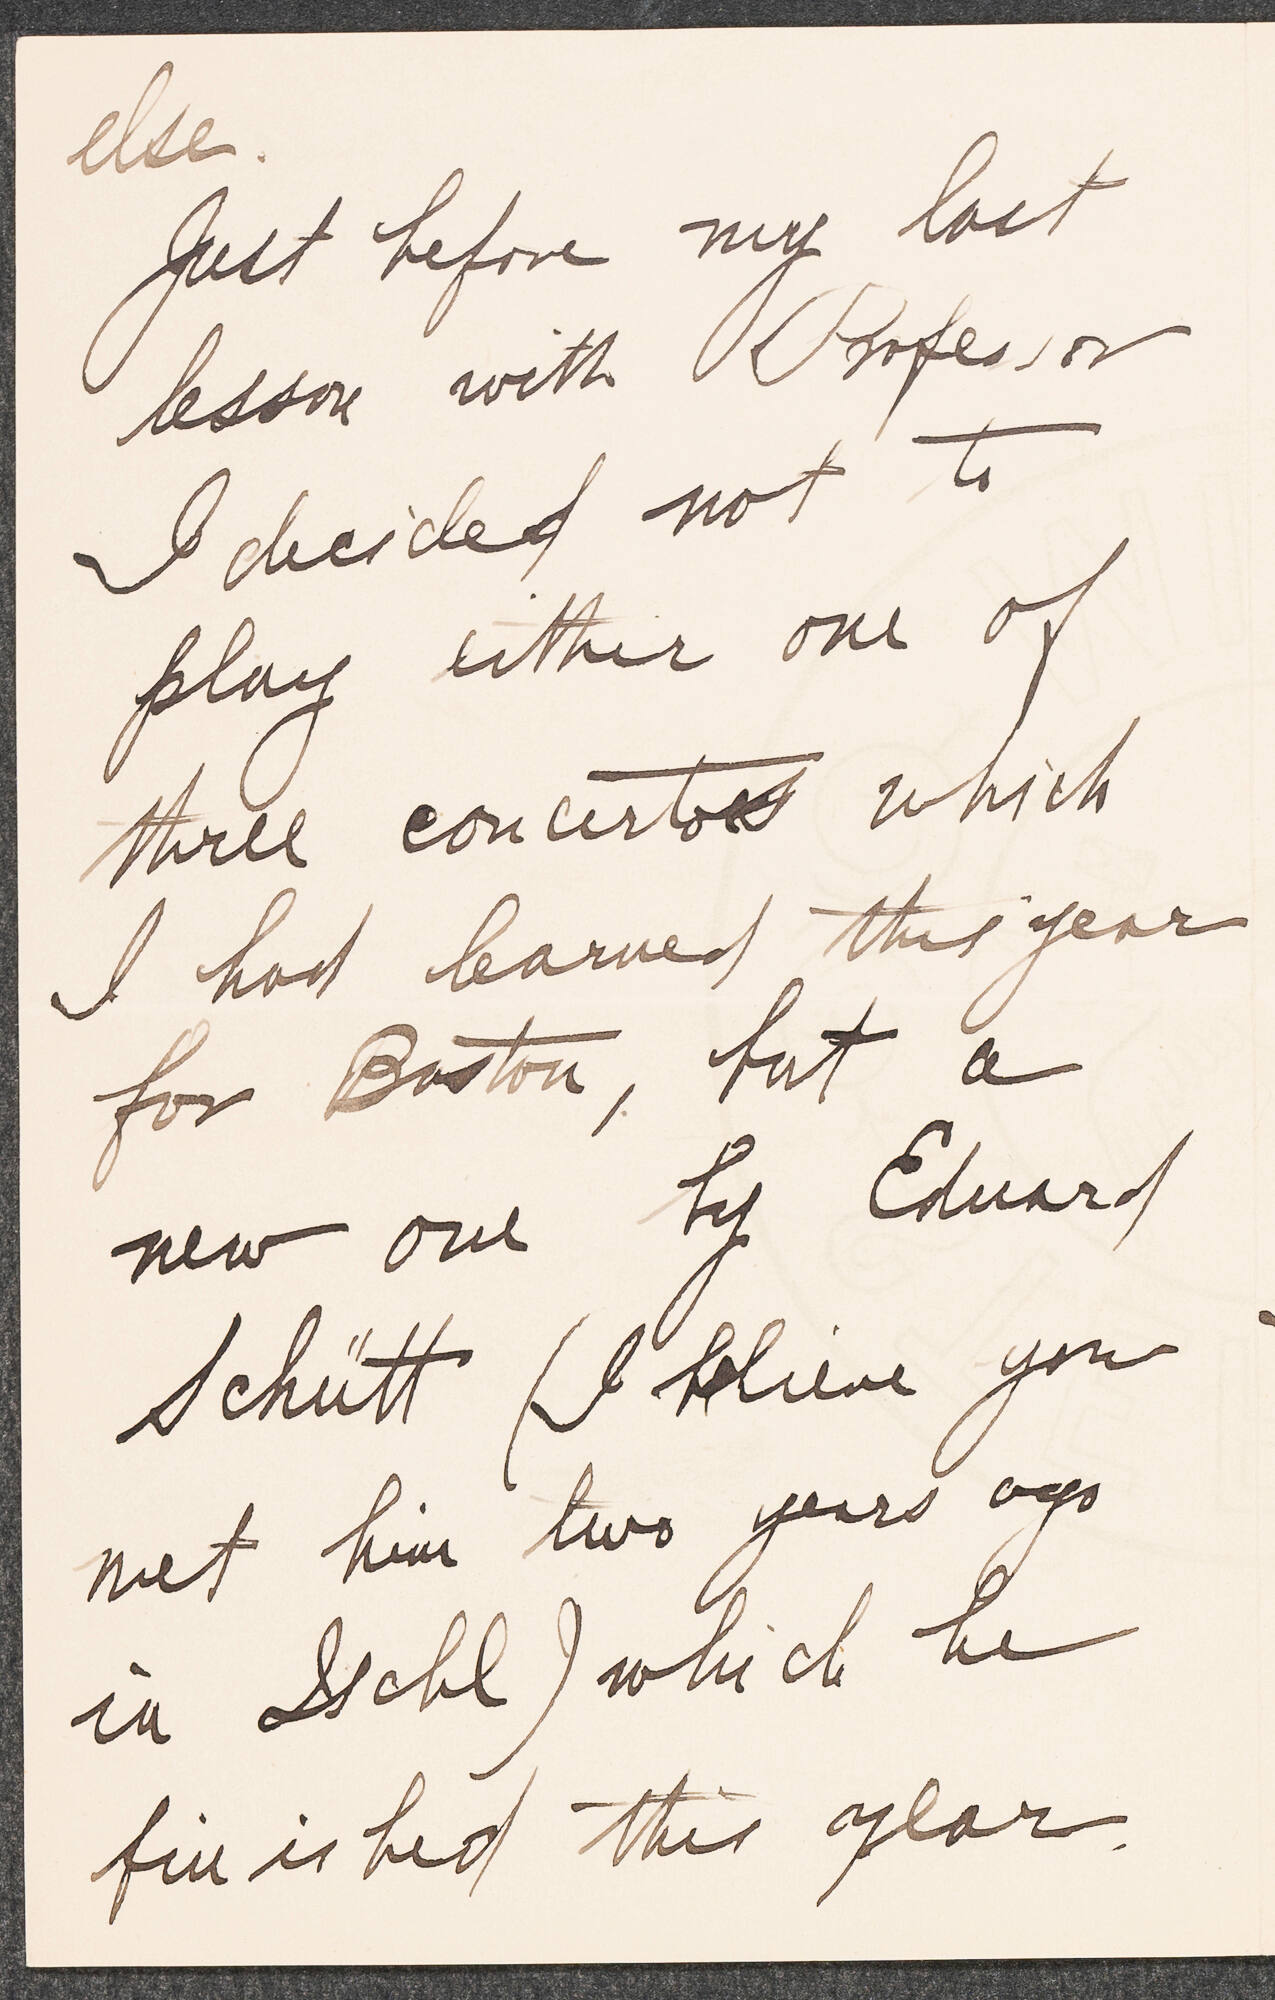 else.
Just before my last
lesson with Professor
I decided not to
play either one of
three concertos which
I had learned this year
for Boston, but a
new one by Eduard
Schütt (I believe you
met him two years ago
in Ischl) which he
finished this year.